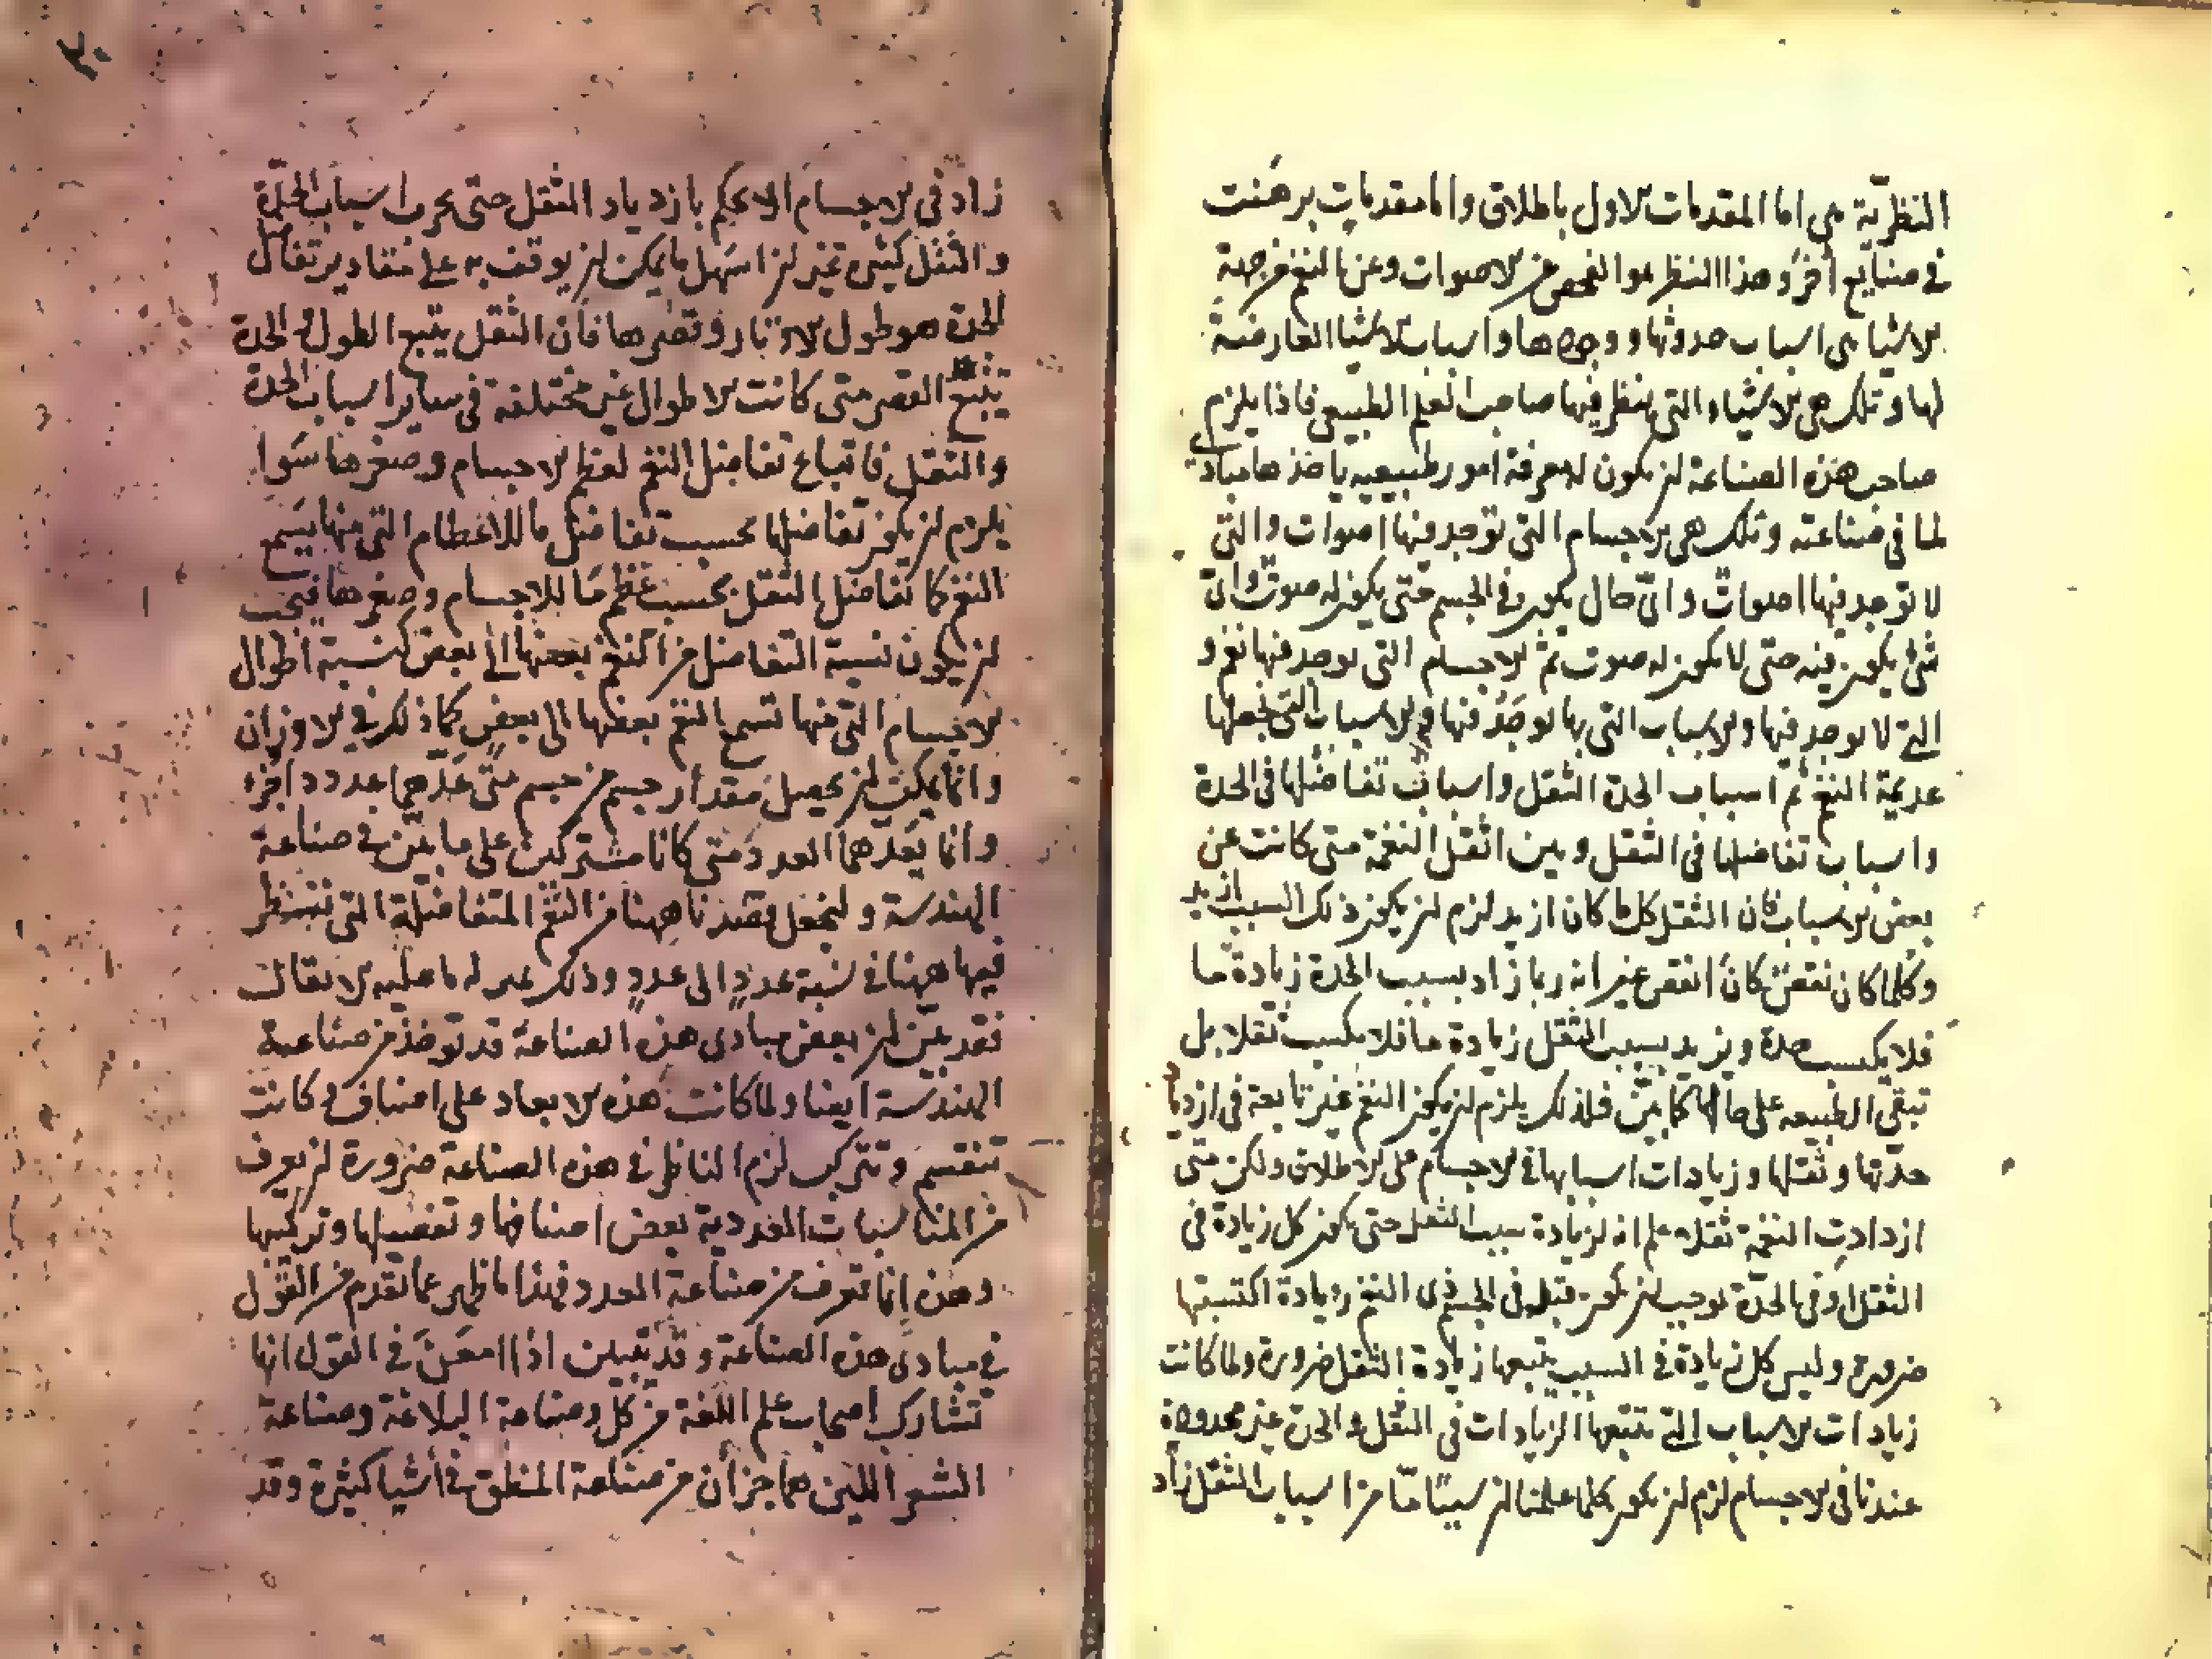 النظرية هي اما المقدمات الاول باطلاق واما مقدمات برهنت
في صنايع أخر وهذا النظر هو الفحص عن الاصوات وعن النغم من جهة
الاشيا هي اسباب حدوثها ووجودها واسباب الاشيا العارضة
لها وتلك هي الاشياء التي ينظر فيها صاحب العلم الطبيعي فاذا يلزم
صاحب هذه الصناعة ان يكون له معرفة امور طبيعيه ياخذها مبادي
لما في صناعته وتلك هي الاجسام التي توجد فيها اصوات والتي
لا توجد فيها اصوات واي حال يكون في الجسم حتى يكون له صوت واي
شئ يكون فيه حتى لا يكون له صوت ثم الاجسام التي يوجد فيها نغم و
التي لا يوجد فيها والاسباب التي بها يوجد فيها والاسباب التي تجعلها
عديمة النغم ثم اسباب الحدة الثقل واسباب تفاضلها في الحدة
واسباب تفاضلها في الثقل وبين اثقل النغمة متى كانت عن
بعض الاسباب فان الثقل كلما كان ازيد لزم ان يكون ذلك السبب ازيد
وكلما كان نقص كان انقص غير انه ربما زاد بسبب الحدة زيادة ما
فلا يكسب حدة ويزيد بسبب الثقل زيادة ما فلا يكسب ثقلا بل
تبقى الطبيعه على حالها فلذلك يلزم ان يكون النغم غير تابعة في ازدياد
حدتها وثقلها وزيادات اسبابها في الاجسام على الاطلاق ولكن متى
ازدادت النغمة ثقلا علم انه لزيادة سبب الثقل حتى يكون كل زيادة في
الثقل او في الحدة توجب ان يكون قبل في الجسم ذي النغم زيادة اكتسبتها
ضرورة وليس كل زيادة في السبب يتبعها زيادة الثقل ضرورة ولما كانت
زيادات الاسباب التي تتبعها الزيادات في الثقل والحدة غير محدودة
عندنا في الاجسام لزم ان يكون كلما علمنا ان سببا ما من اسباب الثقل زاد
زاد في الاجسام الا نحكم بازدياد الثقل حتى نحرف اسباب الحدة
والثقل كثيرة غير ان اسهل ما يمكن ان يوقف به على مقادير تفاضل
الحدة هو طول الاوتار وقصرها فان الثقل يتبع الطول والحدة
تتبع القصر متى كانت الاطوال غير مختلفة في ساير اسباب الحدة
والثقل فاتباع تفاضل النغم لعظم الاجسام وصغرها سوا
يلزم ان يكون تفاضلها بحسب تفاضل ما للاعظام التي منها يسمع
النغم كما تفاضل الثقل بحسب عظم ما للاجسام وصغرها فيجب
ان يكون نسبة التفاضل من النغم بعضها الى بعض كنسبة أطوال
الاجسام التي منها تسمع النغم بعضها الى بعض كما ذلك في الاوزان
وانما يمكن ان يحصل مقدار جسم من جسم متى عدهما عدد اجزاء
وانما يعدهما العدد متى كانا مشتركين على ما بين في صناعة
الهندسة ولنجعل قصدنا ههنا من النغم المتفاضلة التي ننظر
فيها ههنا في نسبة عدد الى عدد وذلك
فقد تبين ان بعض مبادى هذه الصناعة قد توخذ من صناعة
الهندسة ايضا ولما كانت هذه الابعاد على اصناف وكانت
تنقسم وتتركب لزم الناظر في هذه الصناعة ضرورة ان يعرف
من المناسبات العددية بعض اصنافها وتفصيلها وتركيبها
وهذه إنما تعرف من صناعة العدد فهذا ما ظهر عما تقدم من القول
في مبادى هذه الصناعة وقد تبين اذا امعن في القول انها
تشارك اصحاب علم اللغة من كل وصناعة البلاغة وصناعة
الشعر اللتين هما جزأن من صناعة المنطق في أشيا كثيرة وقد